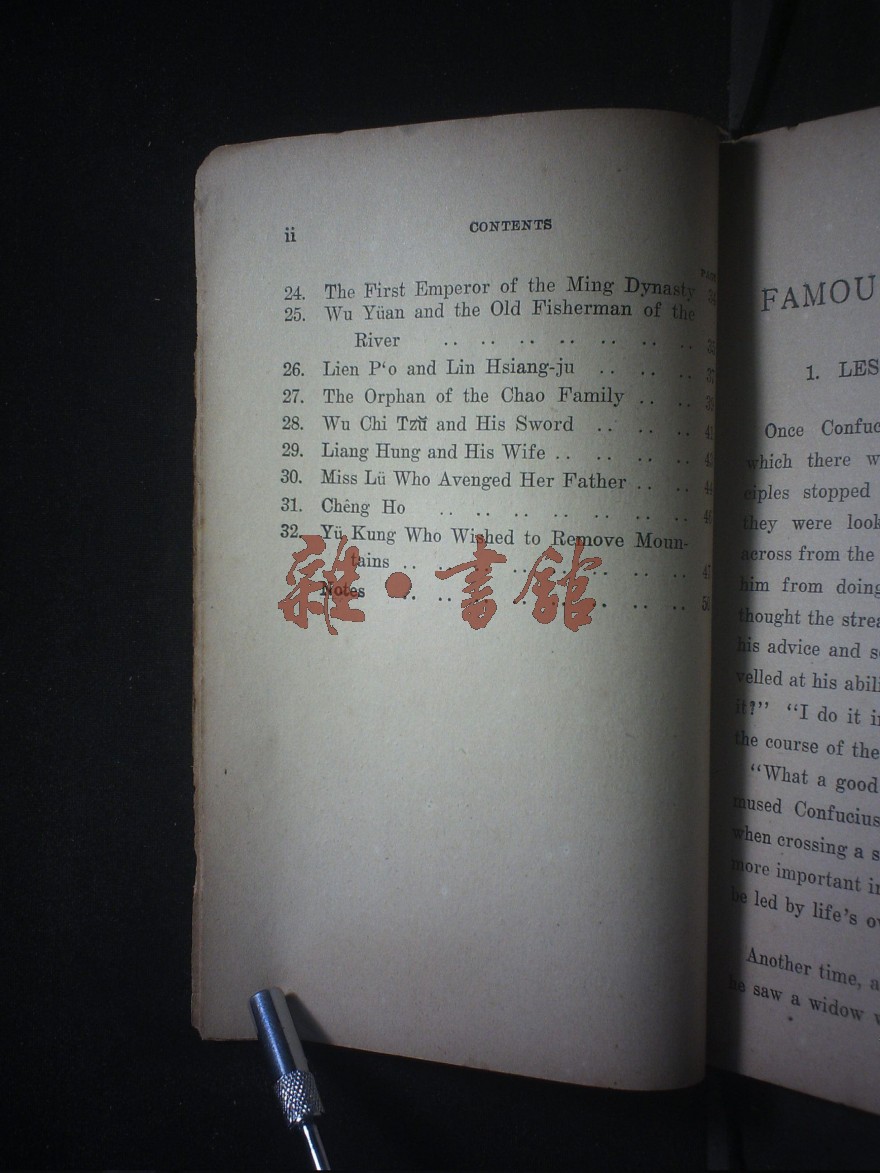 ii CONTENTS
24. The First Emperor of the Ming Dynasty
25. Wu Yüan and the Old Fisherman of the
River .. .. .. .. .. .. ..
26. Lien P‘o and Lin Hsiang-ju .. .. .. 37
27. The Orphan of the Chao Family .. .. 39
28. Wu Chi Tzŭ and His Sword .. .. .. 41
29. Liang Hung and His Wife .. .. .. ..
30. Miss Lü Who Avenged Her Father .. .. 44
31. Chêng Ho .. .. .. .. .. .. .. 46
32. Yü Kung Who Wished to Remove Moun-
tains .. .. .. .. .. .. .. .. 47
Notes .. .. .. .. .. .. .. ..
雜·書館
FAMOU
1. LES
Once Confuc
which there w
ciples stopped
they were look
across from the
him from doing
thought the strea
his advice and s
velled at his abili
it?” “I do it i
the course of the
“What a good
mused Confucius
when crossing a s
more important i
be led by life’s o
Another time, a
he saw a widow